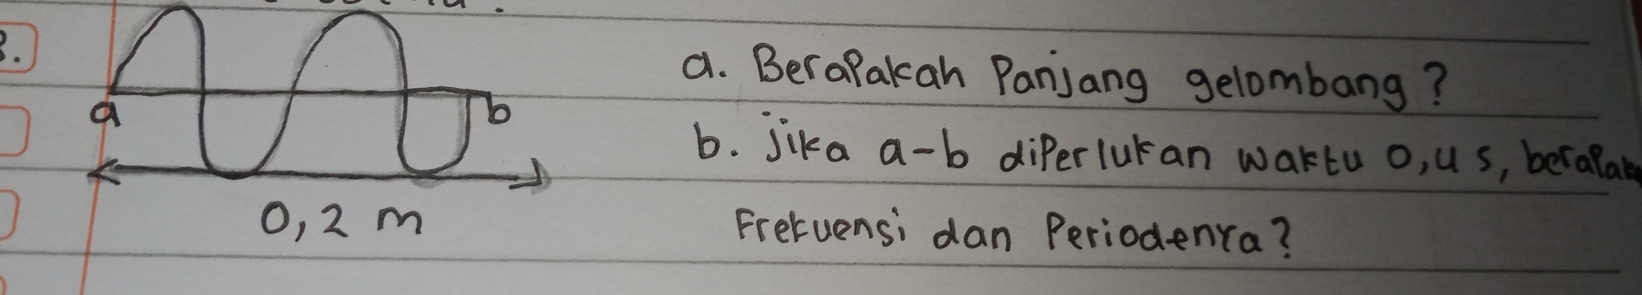 3.
a
b
0,2 m
a. Berapakah Panjang gelombang?
b. jika a-b diperlukan waktu 0,4 s,
Frekuensi dan Periodenya?